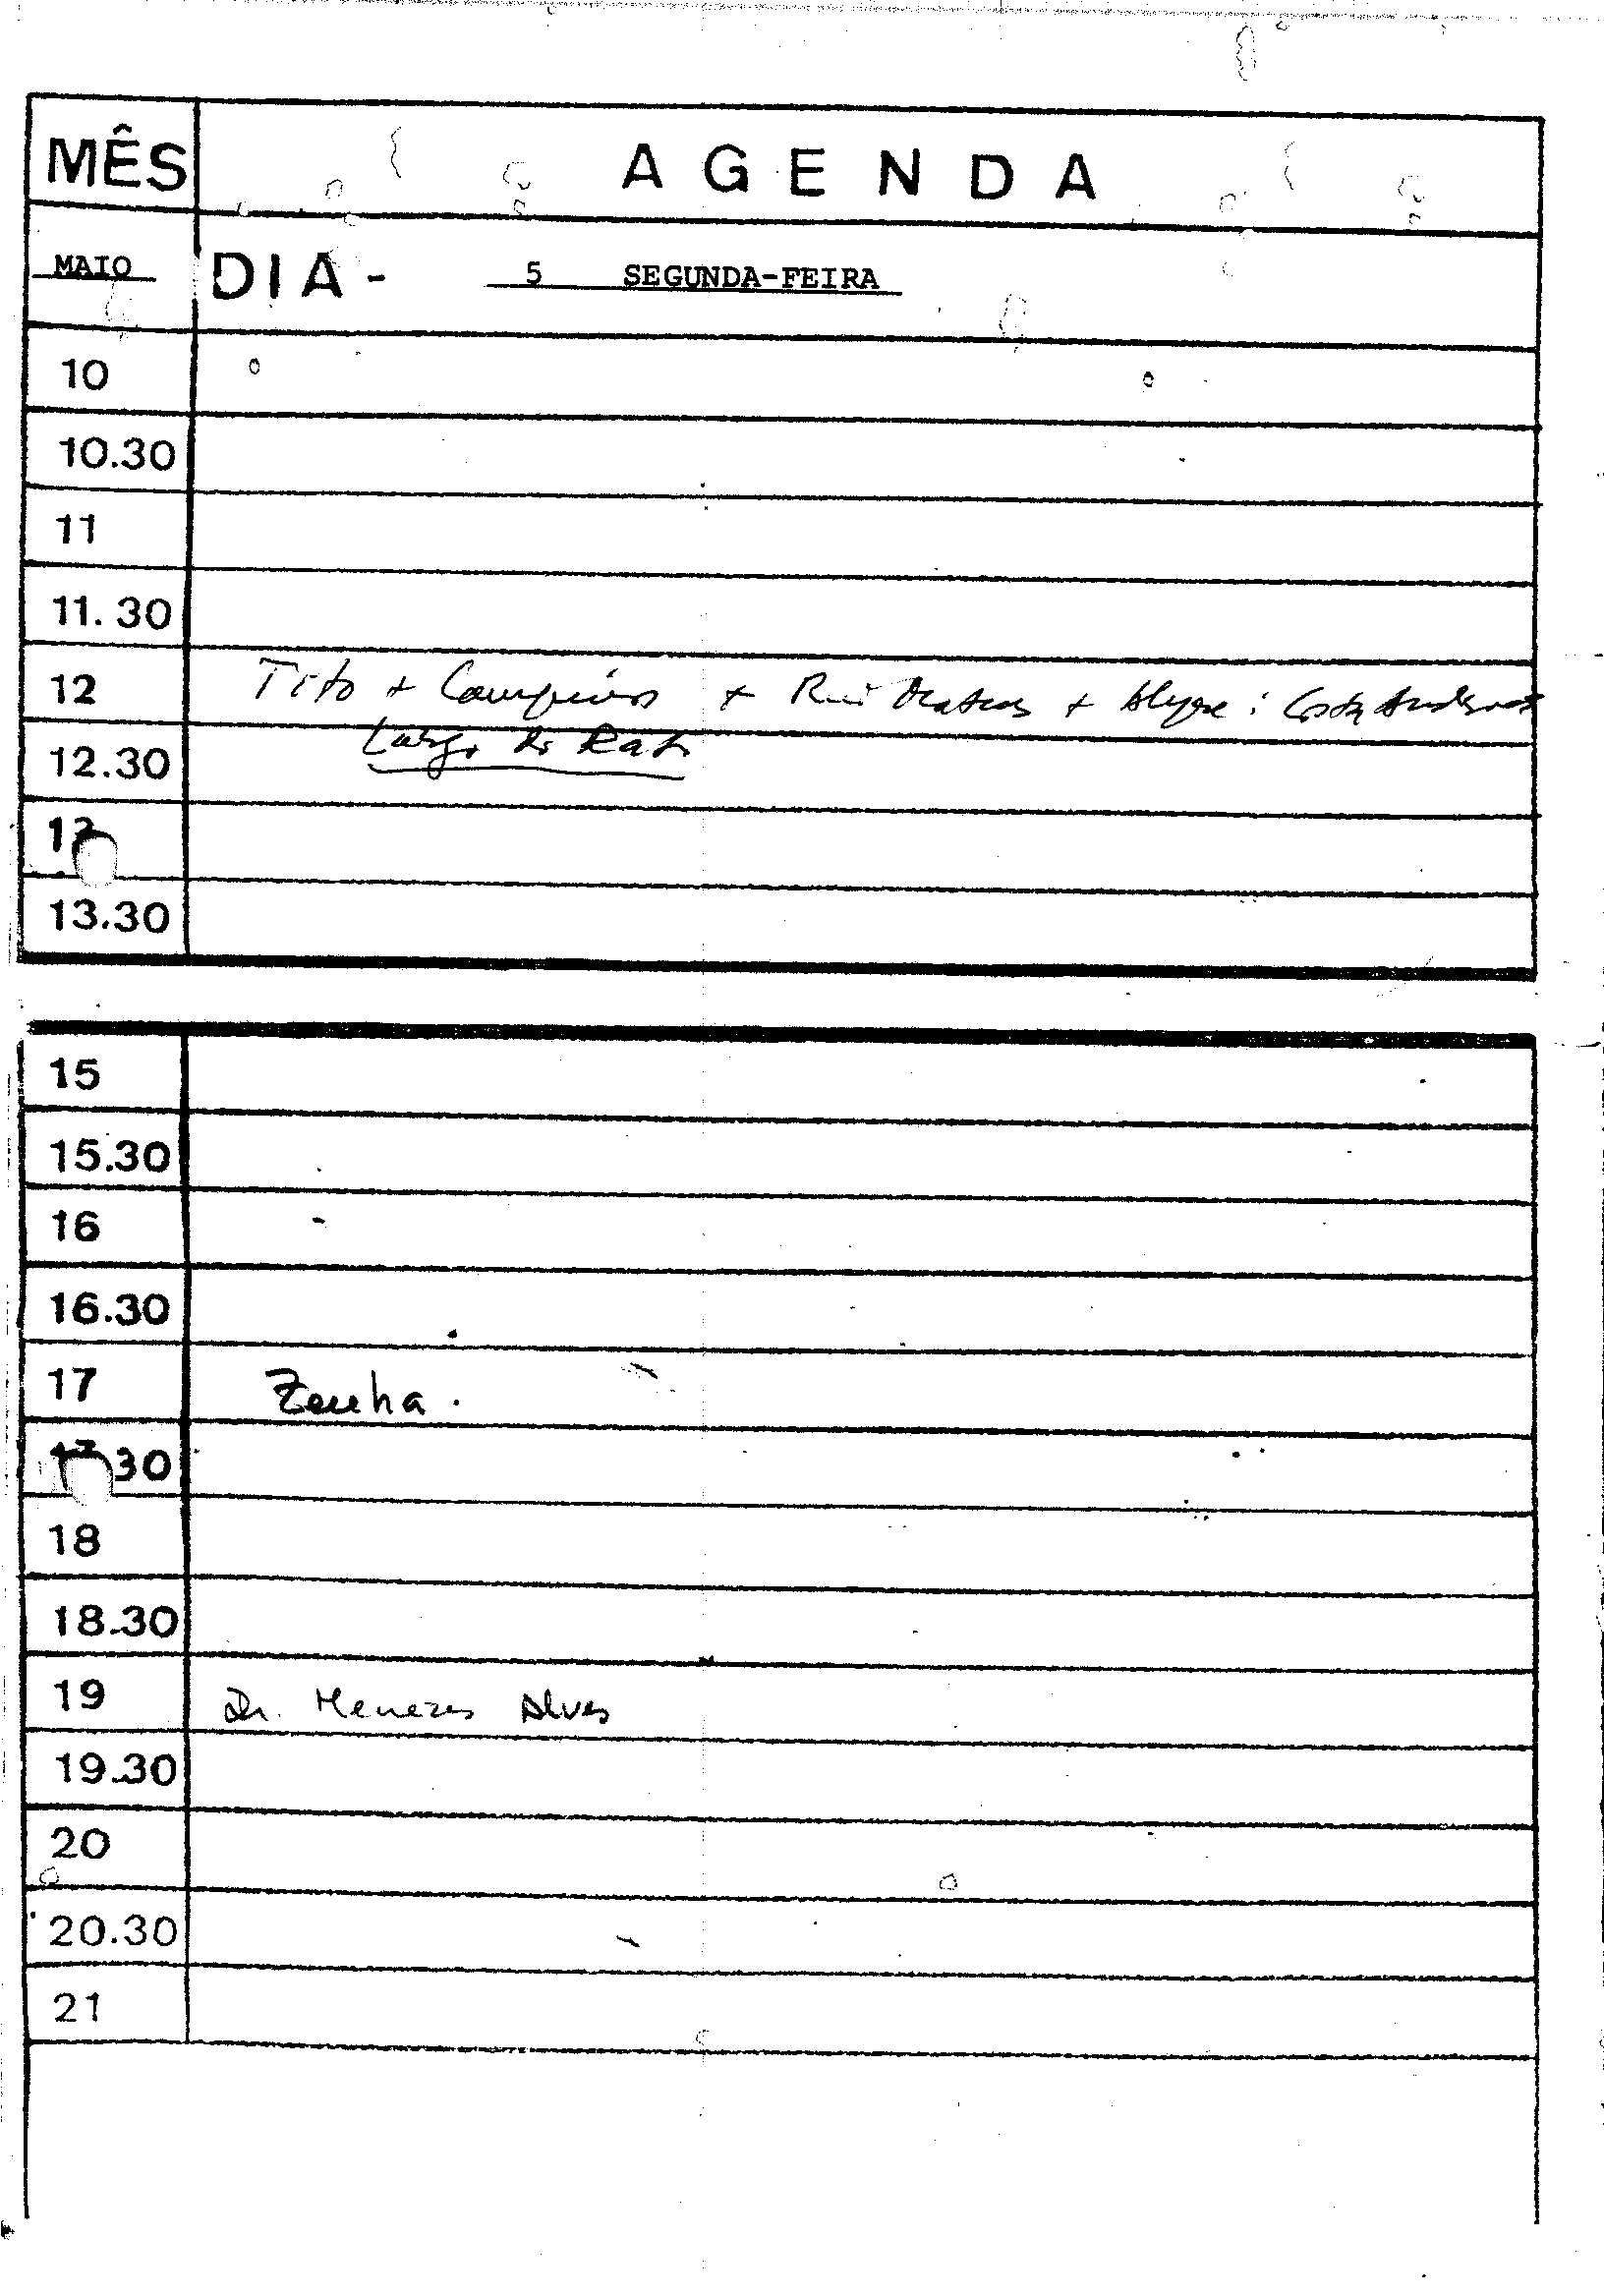 MÊS AGENDA
MAIO DIA - 5 SEGUNDA-FEIRA
10
10.30
11
11.30
12 Tito + Campinos + Rui Mateus + Alegre : Costa
12.30 Largo do Rato
13
13.30
15
15.30
16
16.30
17 Zenha.
17.30
18
18.30
19 Dr. Menezes Alves
19.30
20
20.30
21